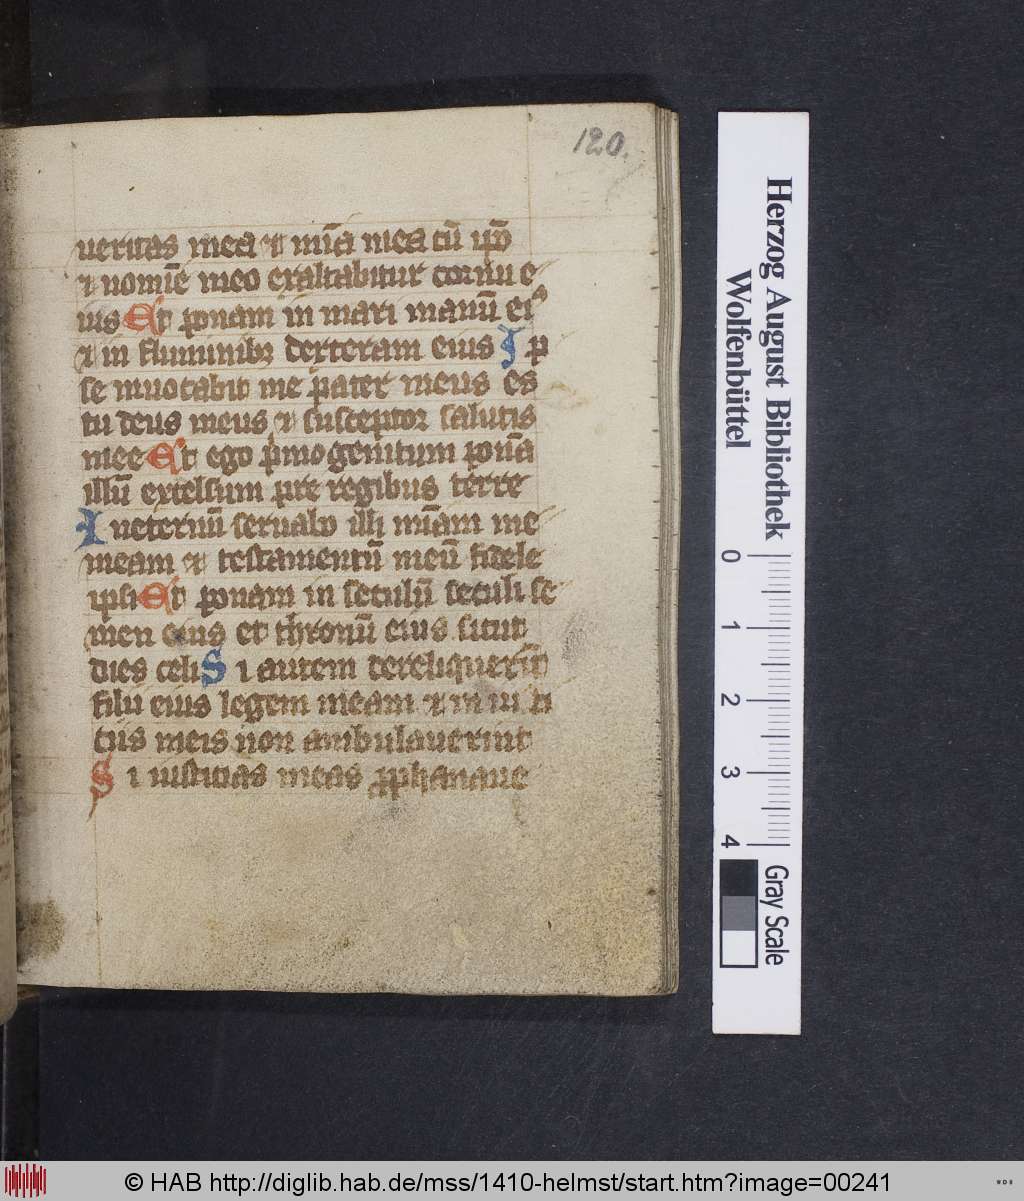 120.
ueritas mea ⁊ mīa mea cū ip̄o
⁊ nomīe meo exaltabitur cornu e
ius Et ponam in mari manū eiꝰ
⁊ in fluminibꝫ dexteram eius I p
se inuocabit me pater meus es
tu deus meus ⁊ susceptor salutis
mee Et ego p̄mogenitum ponā
illū excelsum p̄re regibus terre
I neternū seruabo illi mīam me
meam et testamentū meū fidele
ipsi Et ponam in seculū seculi se
men eius et thronū eius sicut
dies celi S i autem dereliquerīt
filii eius legem meam ⁊ in iudi
ciis meis non ambulauerint
S i iusticias meas ꝓphanaue
Herzog August Bibliothek
Wolfenbüttel
0 1 2 3 4
Gray Scale
© HAB http://diglib.hab.de/mss/1410-helmst/start.htm?image=00241